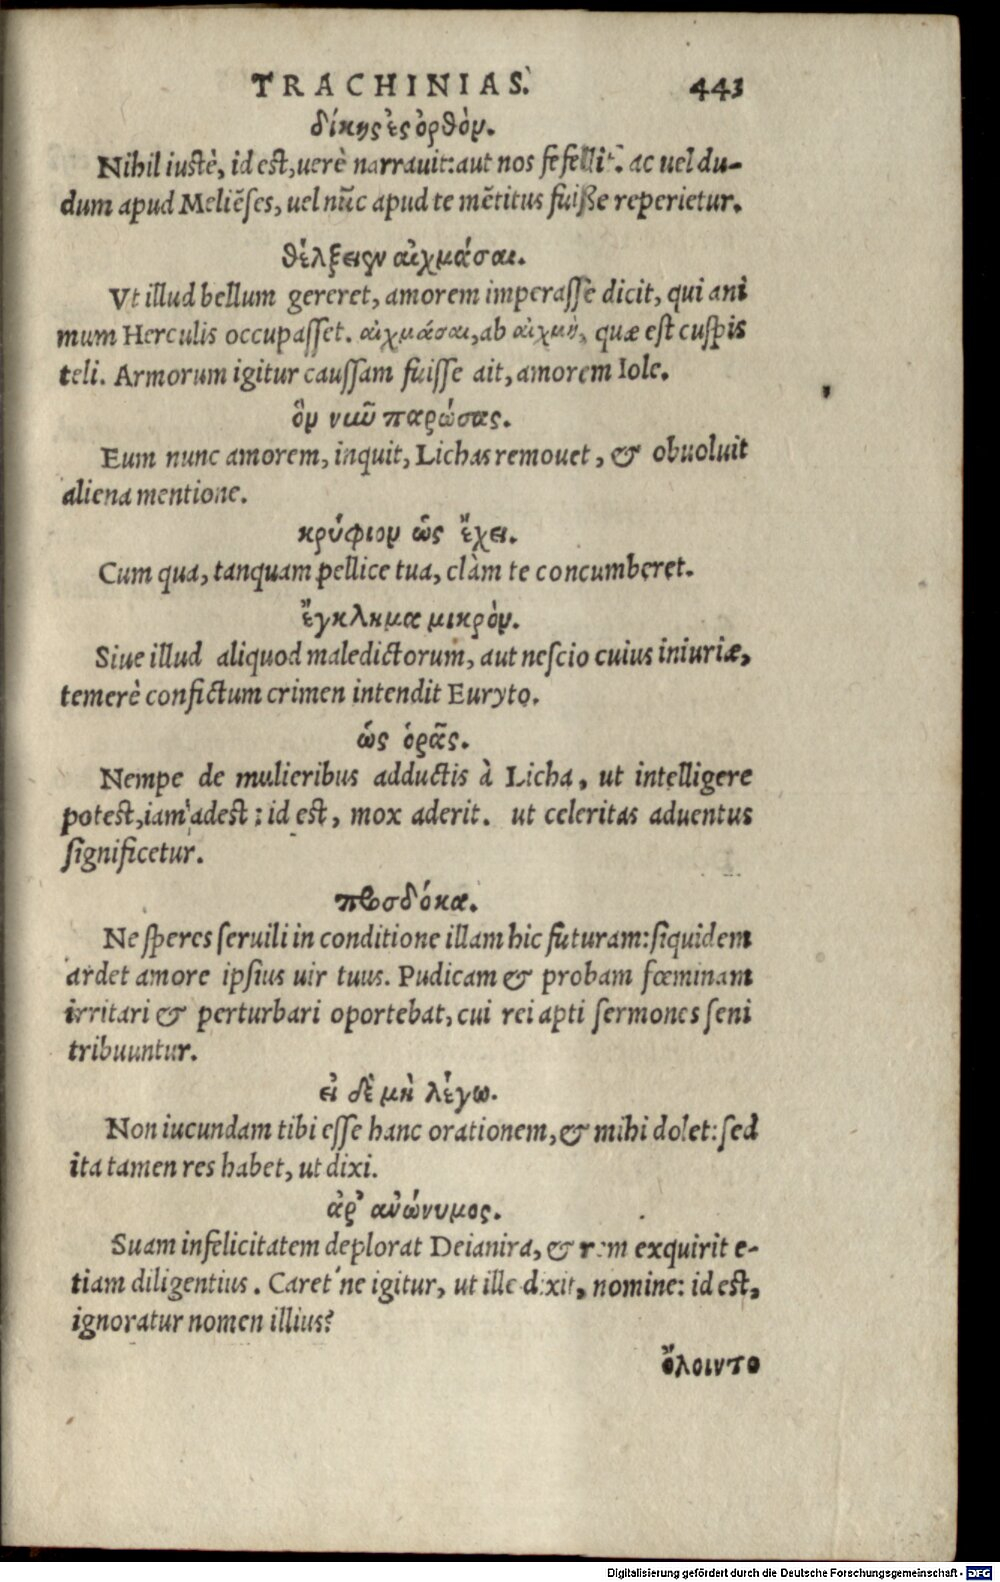 TRACHINIAS. 443
δίκης ἐς ὀρθόν.
Nihil iustè, id est, uerè narrauit: aut nos fefellit. ac uel du-
dum apud Meliẽses, uel nũc apud te mẽtitus fuisse reperietur.
θέλξειεν αἰχμάσαι.
Vt illud bellum gereret, amorem imperasse dicit, qui ani
mum Herculis occupasset. αἰχμάσαι, ab αἰχμὴ, quæ est cuspis
teli. Armorum igitur caussam fuisse ait, amorem Iole.
ὃν νῦν παρώσας.
Eum nunc amorem, inquit, Lichas remouet, & obuoluit
aliena mentione.
κρύφιον ὡς ἔχει.
Cum qua, tanquam pellice tua, clàm te concumberet.
ἔγκλημα μικρὸν.
Siue illud aliquod maledictorum, aut nescio cuius iniuriæ,
temerè confictum crimen intendit Euryto.
ὡς ὁρᾶς.
Nempe de mulieribus adductis à Licha, ut intelligere
potest, iam adest: id est, mox aderit. ut celeritas aduentus
significetur.
προσδόκα.
Ne speres seruili in conditione illam hic futuram: siquidem
ardet amore ipsius uir tuus. Pudicam & probam fœminam
irritari & perturbari oportebat, cui rei apti sermones seni
tribuuntur.
εἰ δὲ μὴ λέγω.
Non iucundam tibi esse hanc orationem, & mihi dolet: sed
ita tamen res habet, ut dixi.
ἆρ' ἀνώνυμος.
Suam infelicitatem deplorat Deianira, & rem exquirit e-
tiam diligentius. Caret'ne igitur, ut ille dixit, nomine: id est,
ignoratur nomen illius?
ὄλοιντο
Digitalisierung gefördert durch die Deutsche Forschungsgemeinschaft - DFG